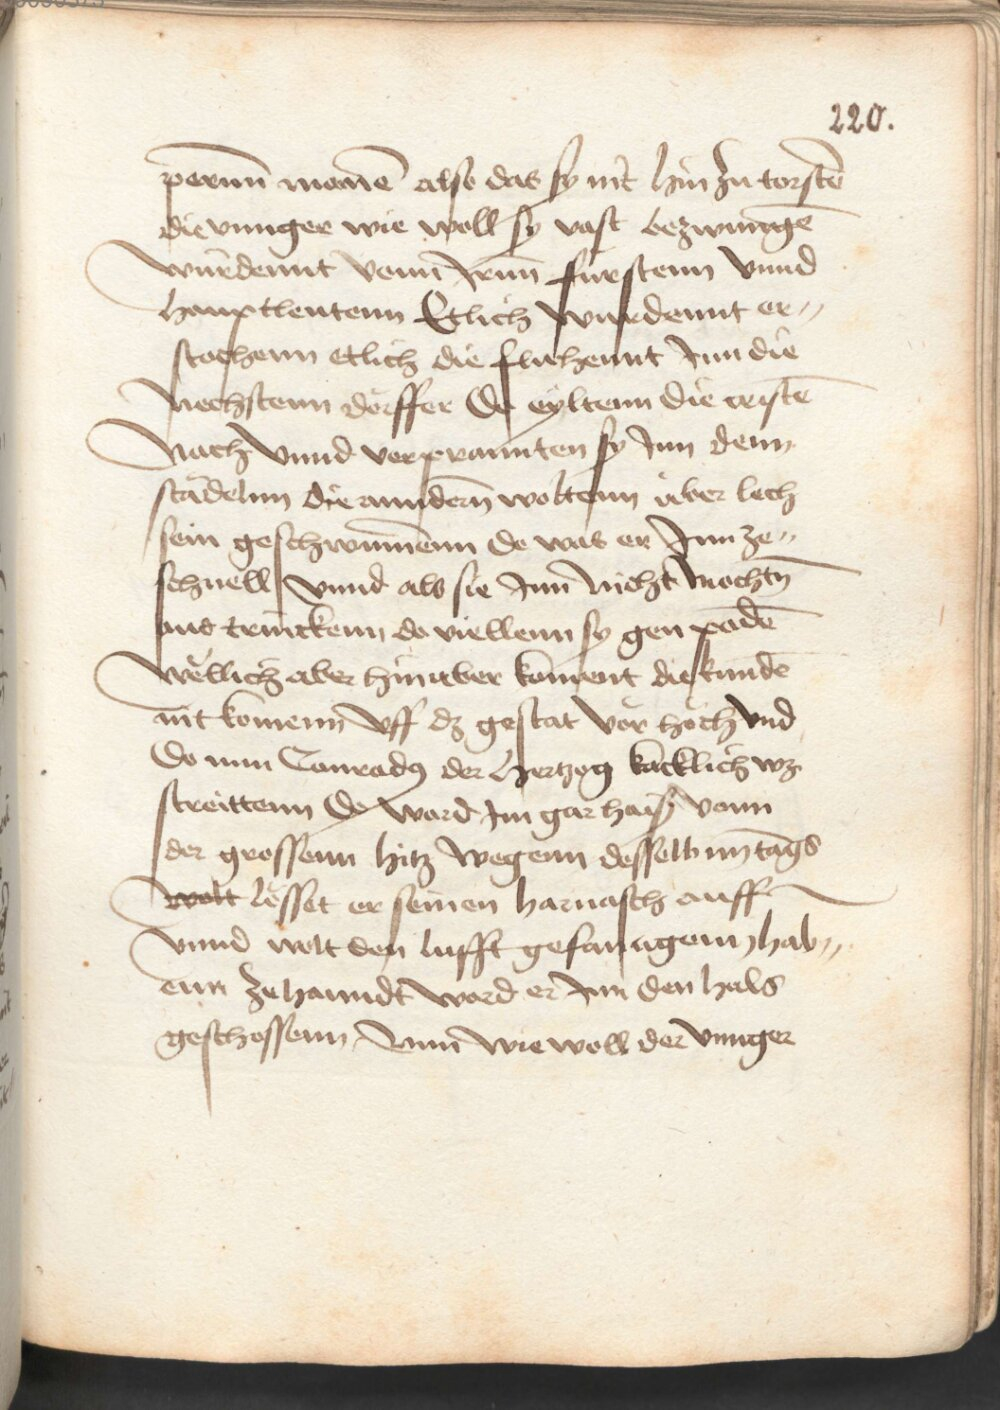 220.
perinn manē also das sy nit hin zu torstē
die vnnger wie woll sy vast bezwungē
wurdennt vonn Irnn fürstenn vnnd
hauptleutenn Etlich wurdennt er„
stochenn etlich die fluhennt Inn die
nechstenn dörffer Do eyltenn die cristē
nach vnnd verpranntten sy Inn denn
städelnn die anndern woltenn über lech
sein geschwummenn do was er Inn ze„
schnell vnnd als sie Inn nicht mochtn̄
aus trinckenn do viellenn sy gen podē
wellich aber hinüber koment die kundē
nit komenn vff dz gestat vor höch vnd
Do nun Conradꝯ der Hertzog kecklich wz
streittenn Do ward Im gar haiß vonn
der grossenn hitz wegenn desselbnn tags
wolt lösset er seinen harnasch auff
vnnd wolt den lufft gefanngenn hab„
enn ze hanndt ward er Inn den hals
geschossenn Vnnd wie woll der vnnger